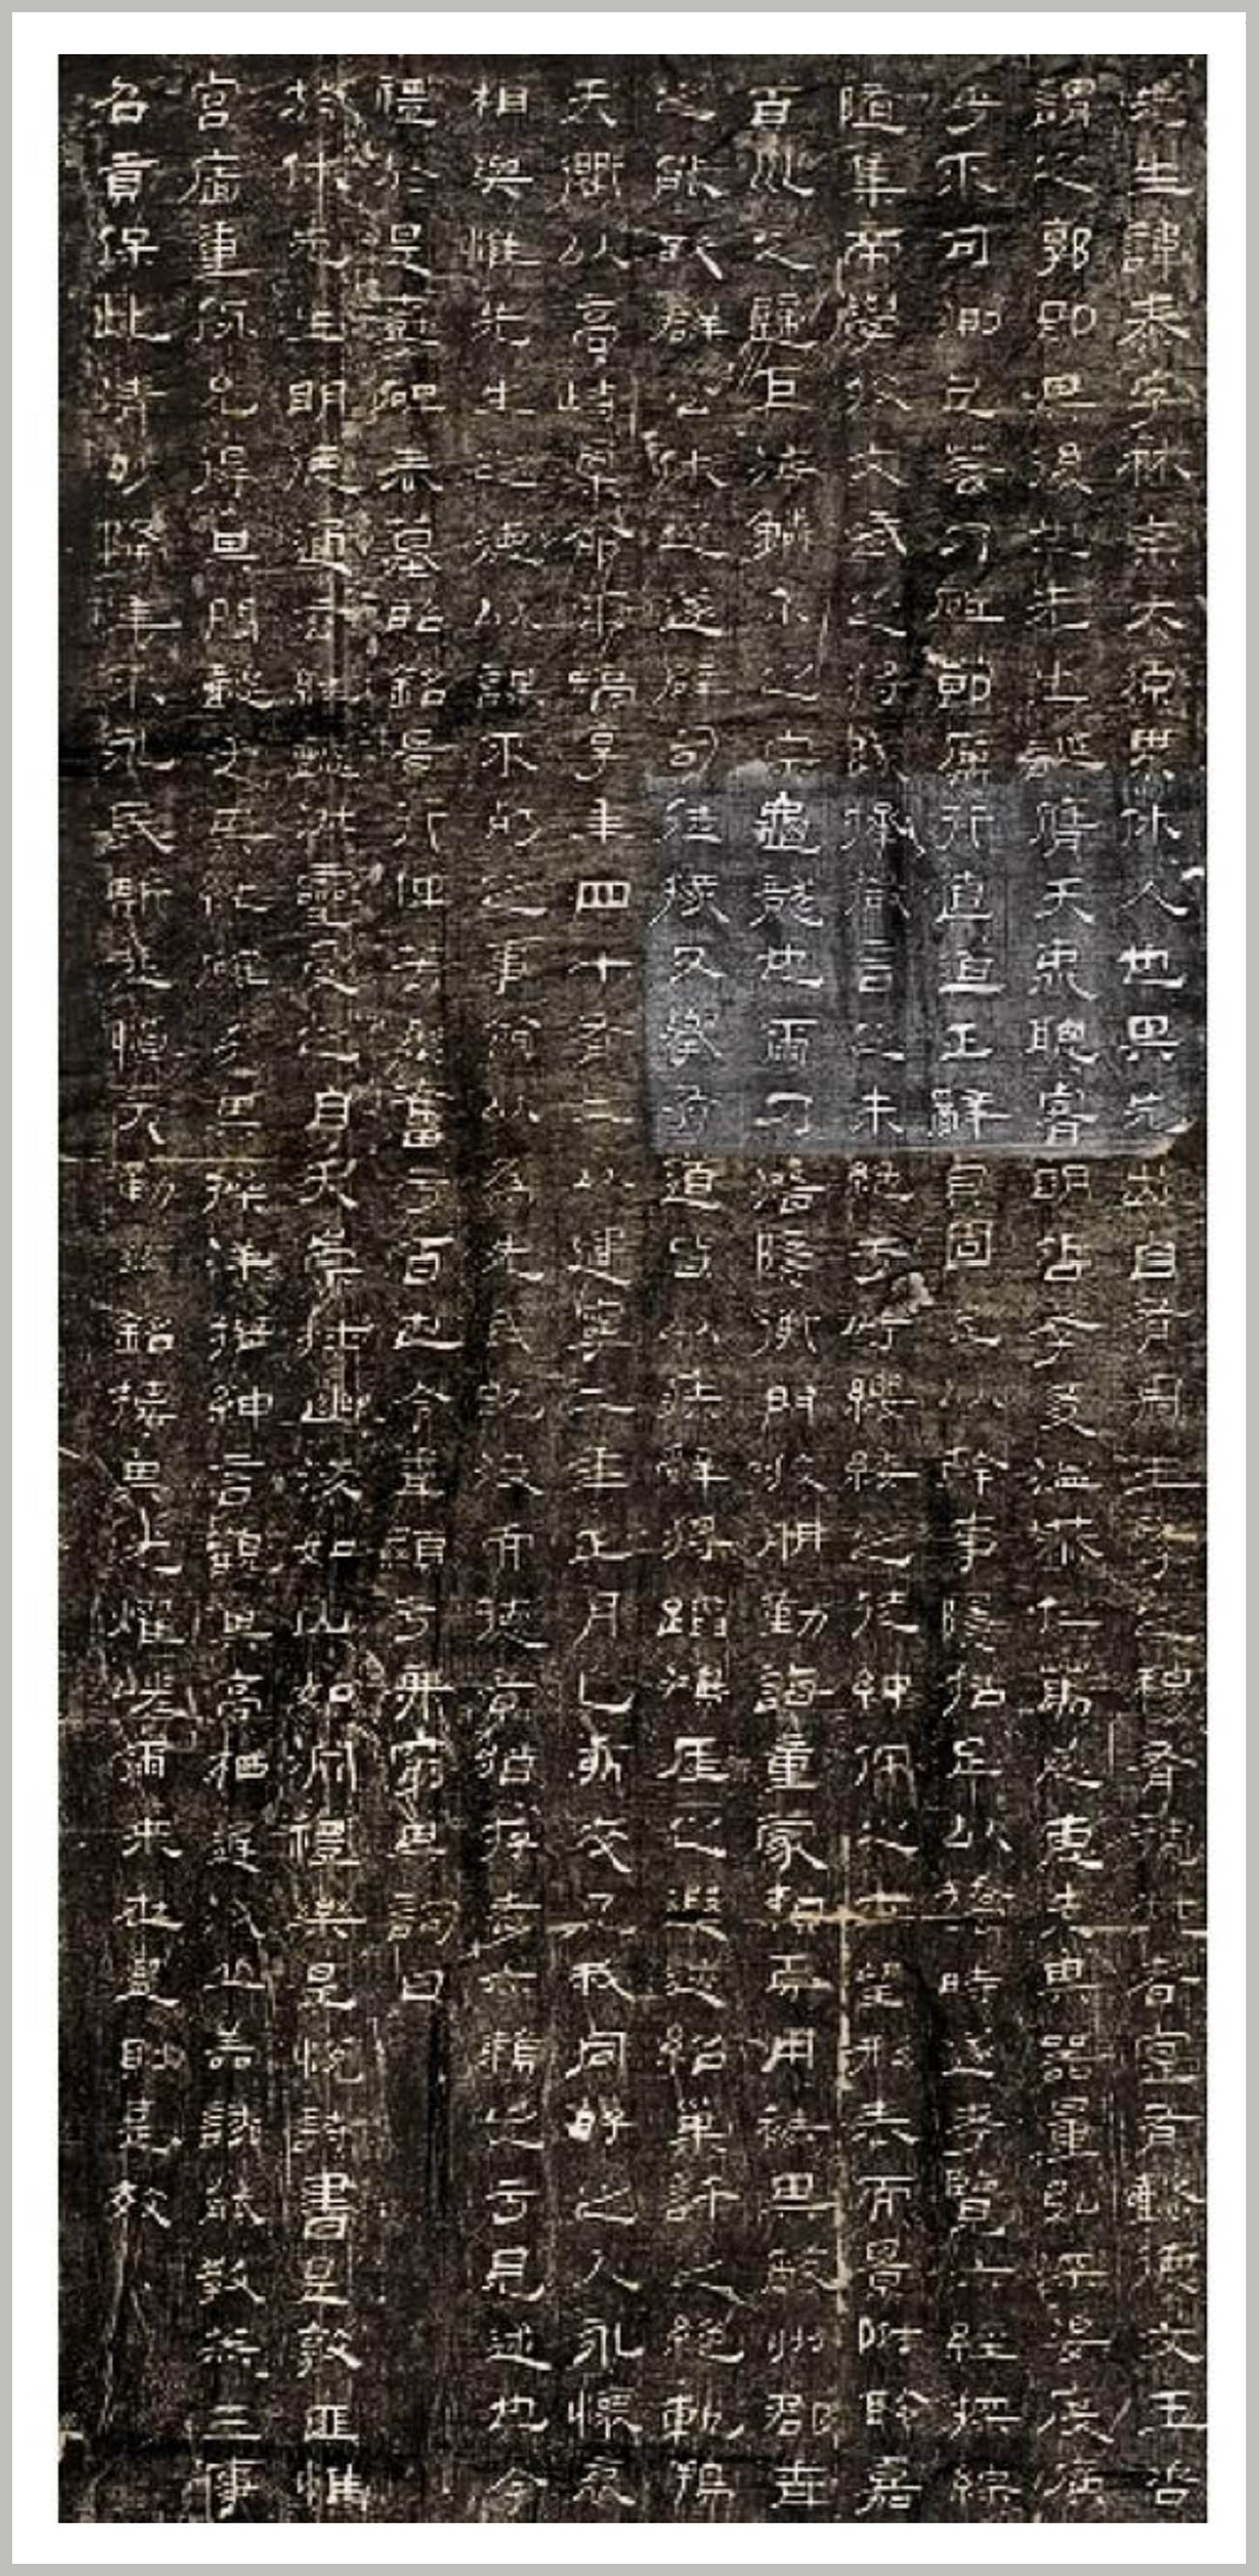 先生諱泰字林宗太原界休人也其先出自有周王季之穆有虢叔者寔有懿德文王咨
謂之郭即其後也先生誕膺天衷聰睿明哲孝友溫恭仁篤慈惠夫其器量弘深姿度廣
乎不可測已若乃砥節厲行直道正辭貞固足以幹事隱括足以矯時遂考覽六經探綜
隨集帝學於文武之將墜拯微言之未絕于時纓緌之徒紳佩之士望形表而景附聆嘉
百川之歸巨海鱗介之宗龜龍也爾乃潛隱衡門收朋勤誨童蒙賴焉用祛其蔽州郡聞
之能致群公休之遂辟司徒掾又舉有道皆以疾辭將蹈鴻涯之遐迹紹巢許之絕軌翔
天衢以高峙稟命不融享年四十有三以建寧二年正月乙亥卒凡我同好之人永懷哀
相與惟先生之德以謀不朽之事僉以為先民既沒而德音猶存者亦賴之于見述也今
禮於是建碑表墓昭銘景行俾芳烈奮于百世令聞顯于無窮其詞曰
於休先生明德通玄純懿淑靈受之自天崇壯幽浚如山如淵禮樂是悅詩書是敦匪惟
宮牆重仞允得其門懿乎其純確乎其操洋洋搢紳言觀其高棲遲泌丘善誘能教赫赫三事
召貢保此清妙降年不永民斯悲悼爰勒茲銘摛其光耀嗟爾來世是則是效